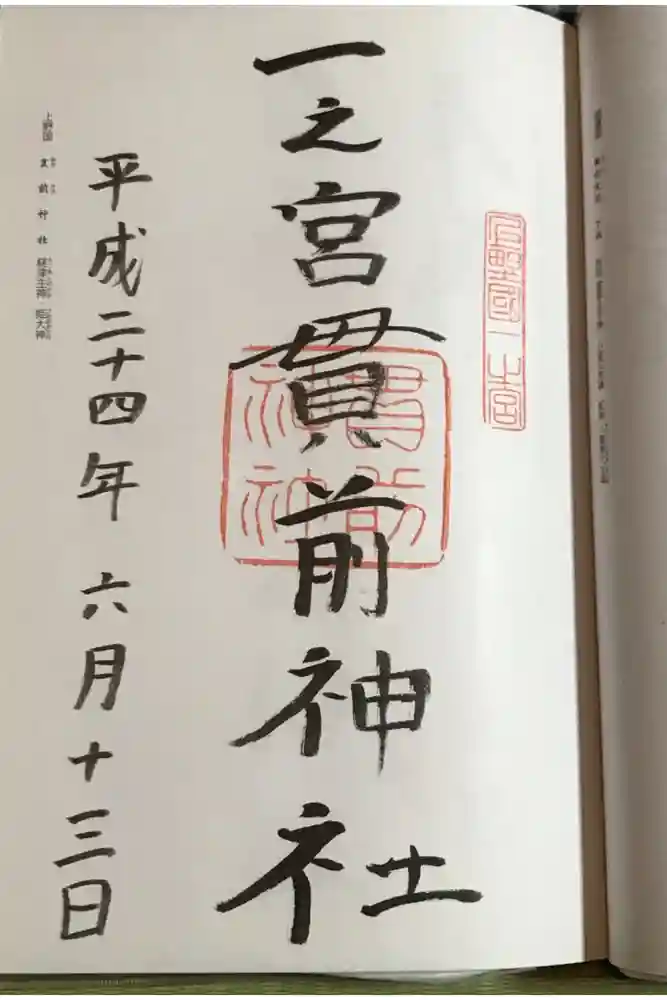 上野國一之宮
一之宮貫前神社
貫前神社
平成二十四年 六月十三日
上野国 貫前神社 経津主神 姫大神